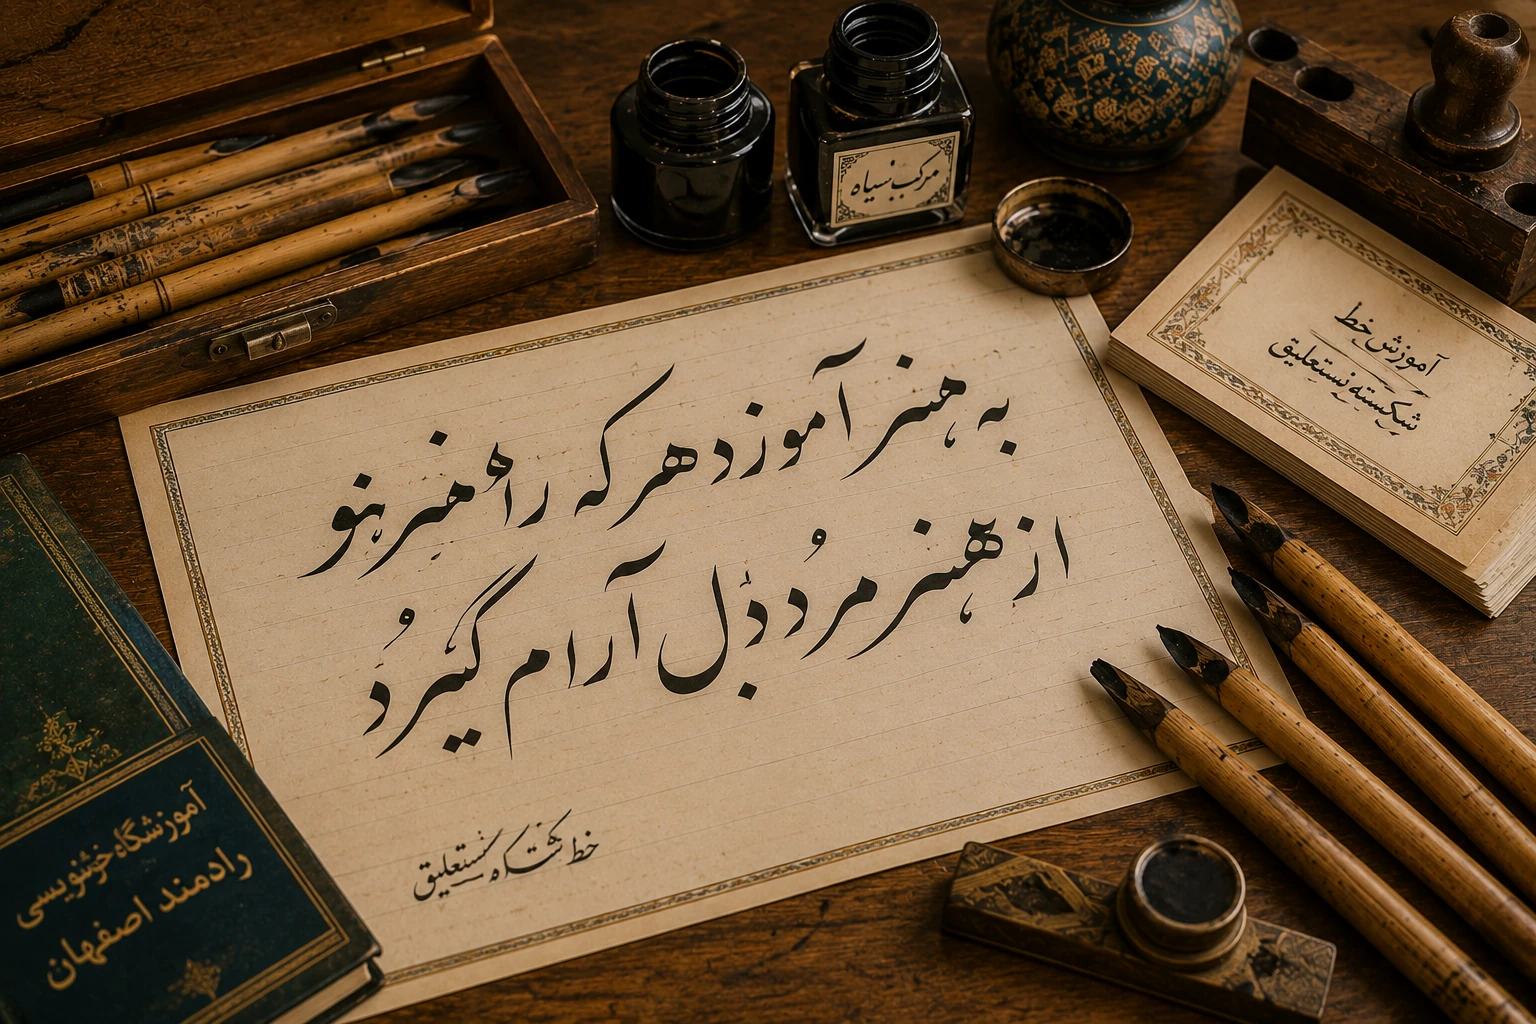 مرکب سیاه
آموزش خط
شکسته نستعلیق
به هنر آموزد هر که راه هنر
از هنر مرد دل آرام گیرد
خط نستعلیق
آموزشگاه خوشنویسی
رادمند اصفهان